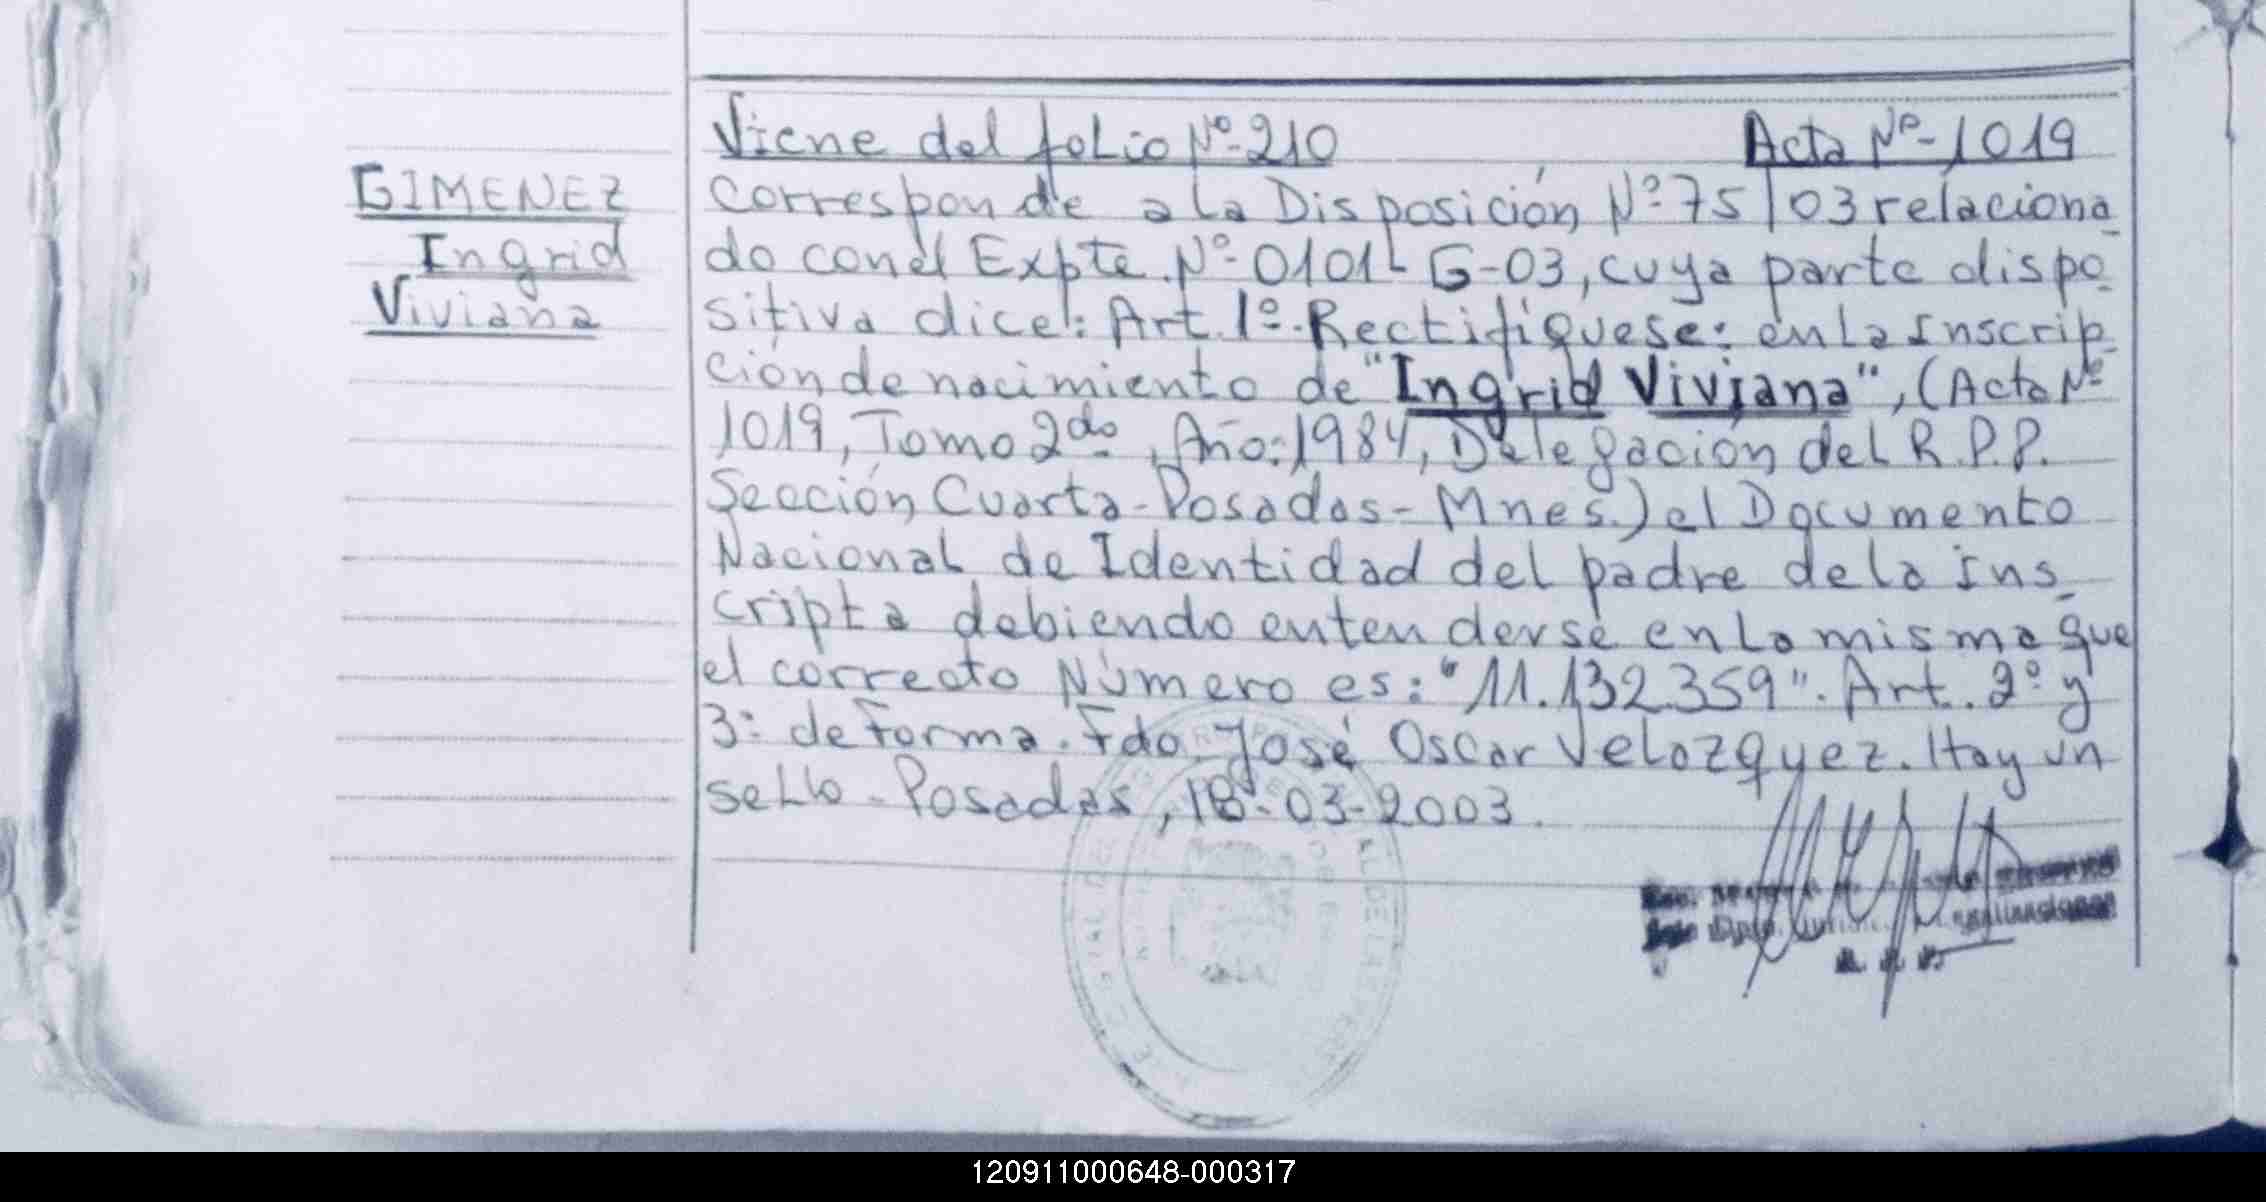 Viene del folio Nº-210 Acta Nº-1019
GIMENEZ
Ingrid
Viviana
Corresponde a la Disposición Nº 75/03 relaciona
do con el Expte. Nº-0101-G-03, cuya parte dispo
sitiva dice: Art. 1º-Rectifíquese: en la Inscrip
ción de nacimiento de "Ingrid Viviana", (Acta Nº
1019, Tomo 2do., Año: 1984, Delegación del R.P.P.
Sección Cuarta-Posadas-Mnes.) el Documento
Nacional de Identidad del padre de la Ins
cripta debiendo entenderse en la misma que
el correcto Número es: "11.132.359". Art. 2º y
3º de forma. Fdo. José Oscar Velozquez. Hay un
sello-Posadas, 18-03-2003.
120911000648-000317